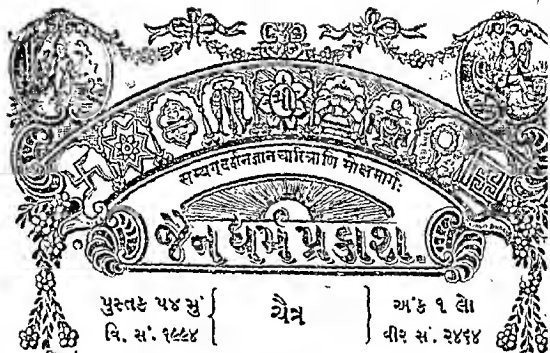 सम्यग्दर्शनज्ञानचारित्राणि मोक्षमार्गः
જૈન ધર્મ પ્રકાશ.
પુસ્તક ૫૪ મું
વિ. સં. ૧૯૯૪
ચૈત્ર
અંક ૧ લો
વીર સં. ૨૪૬૪